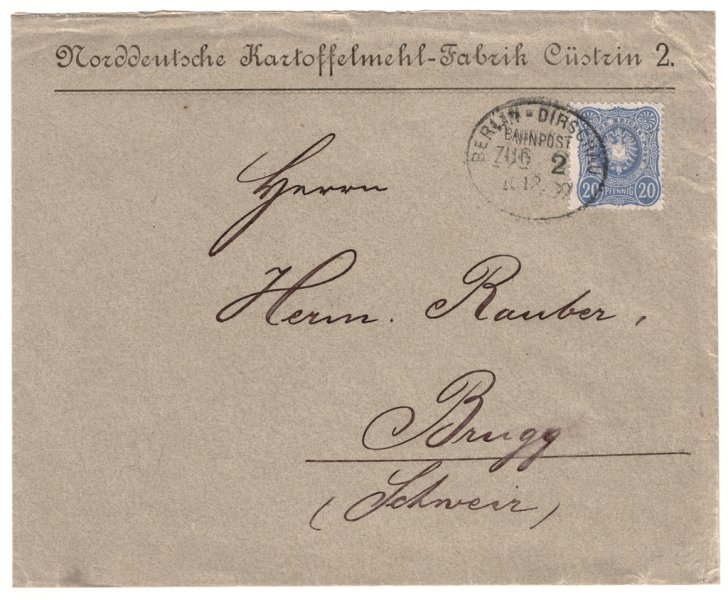 Norddeutsche Kartoffelmehl-Fabrik Cüstrin 2.
BERLIN - DIRSCHAU
BAHNPOST
ZUG 2
20 PFENNIG 20
Herrn
Herm. Rauber,
Brugg
(Schweiz)